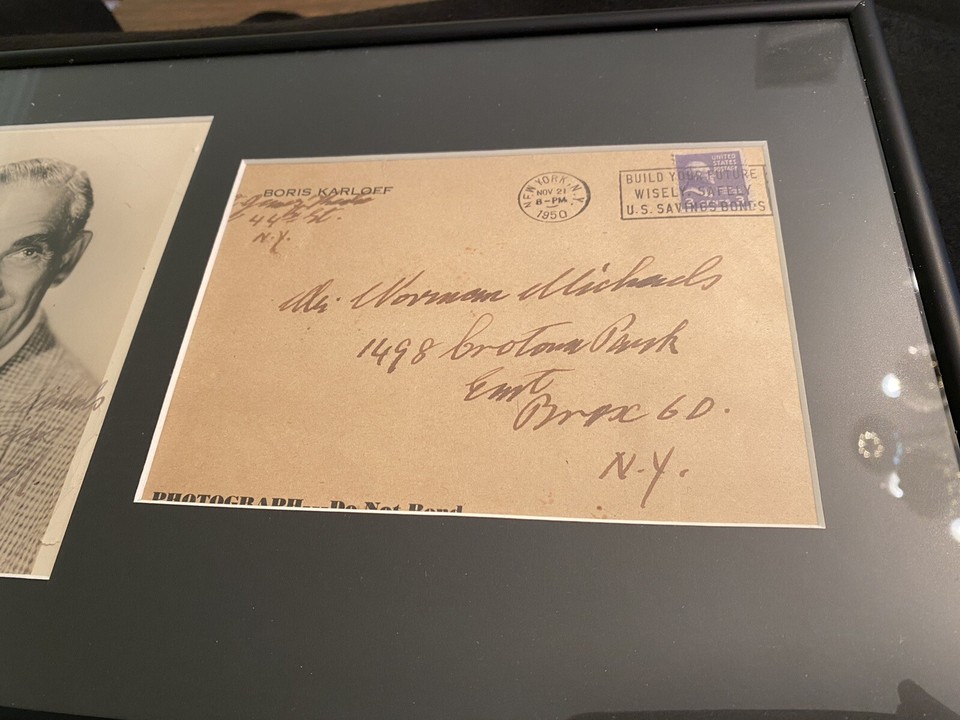 BORIS KARLOFF
44th St.
N.Y.
NEW YORK, N.Y.
NOV 21
8-PM
1950
BUILD YOUR FUTURE
WISELY SAFELY
U.S. SAVINGS BONDS
UNITED
STATES
POSTAGE
Mr Norman Michaels
1498 Crotona Park
East
Bronx 60.
N.Y.
PHOTOGRAPH---Do Not Bend